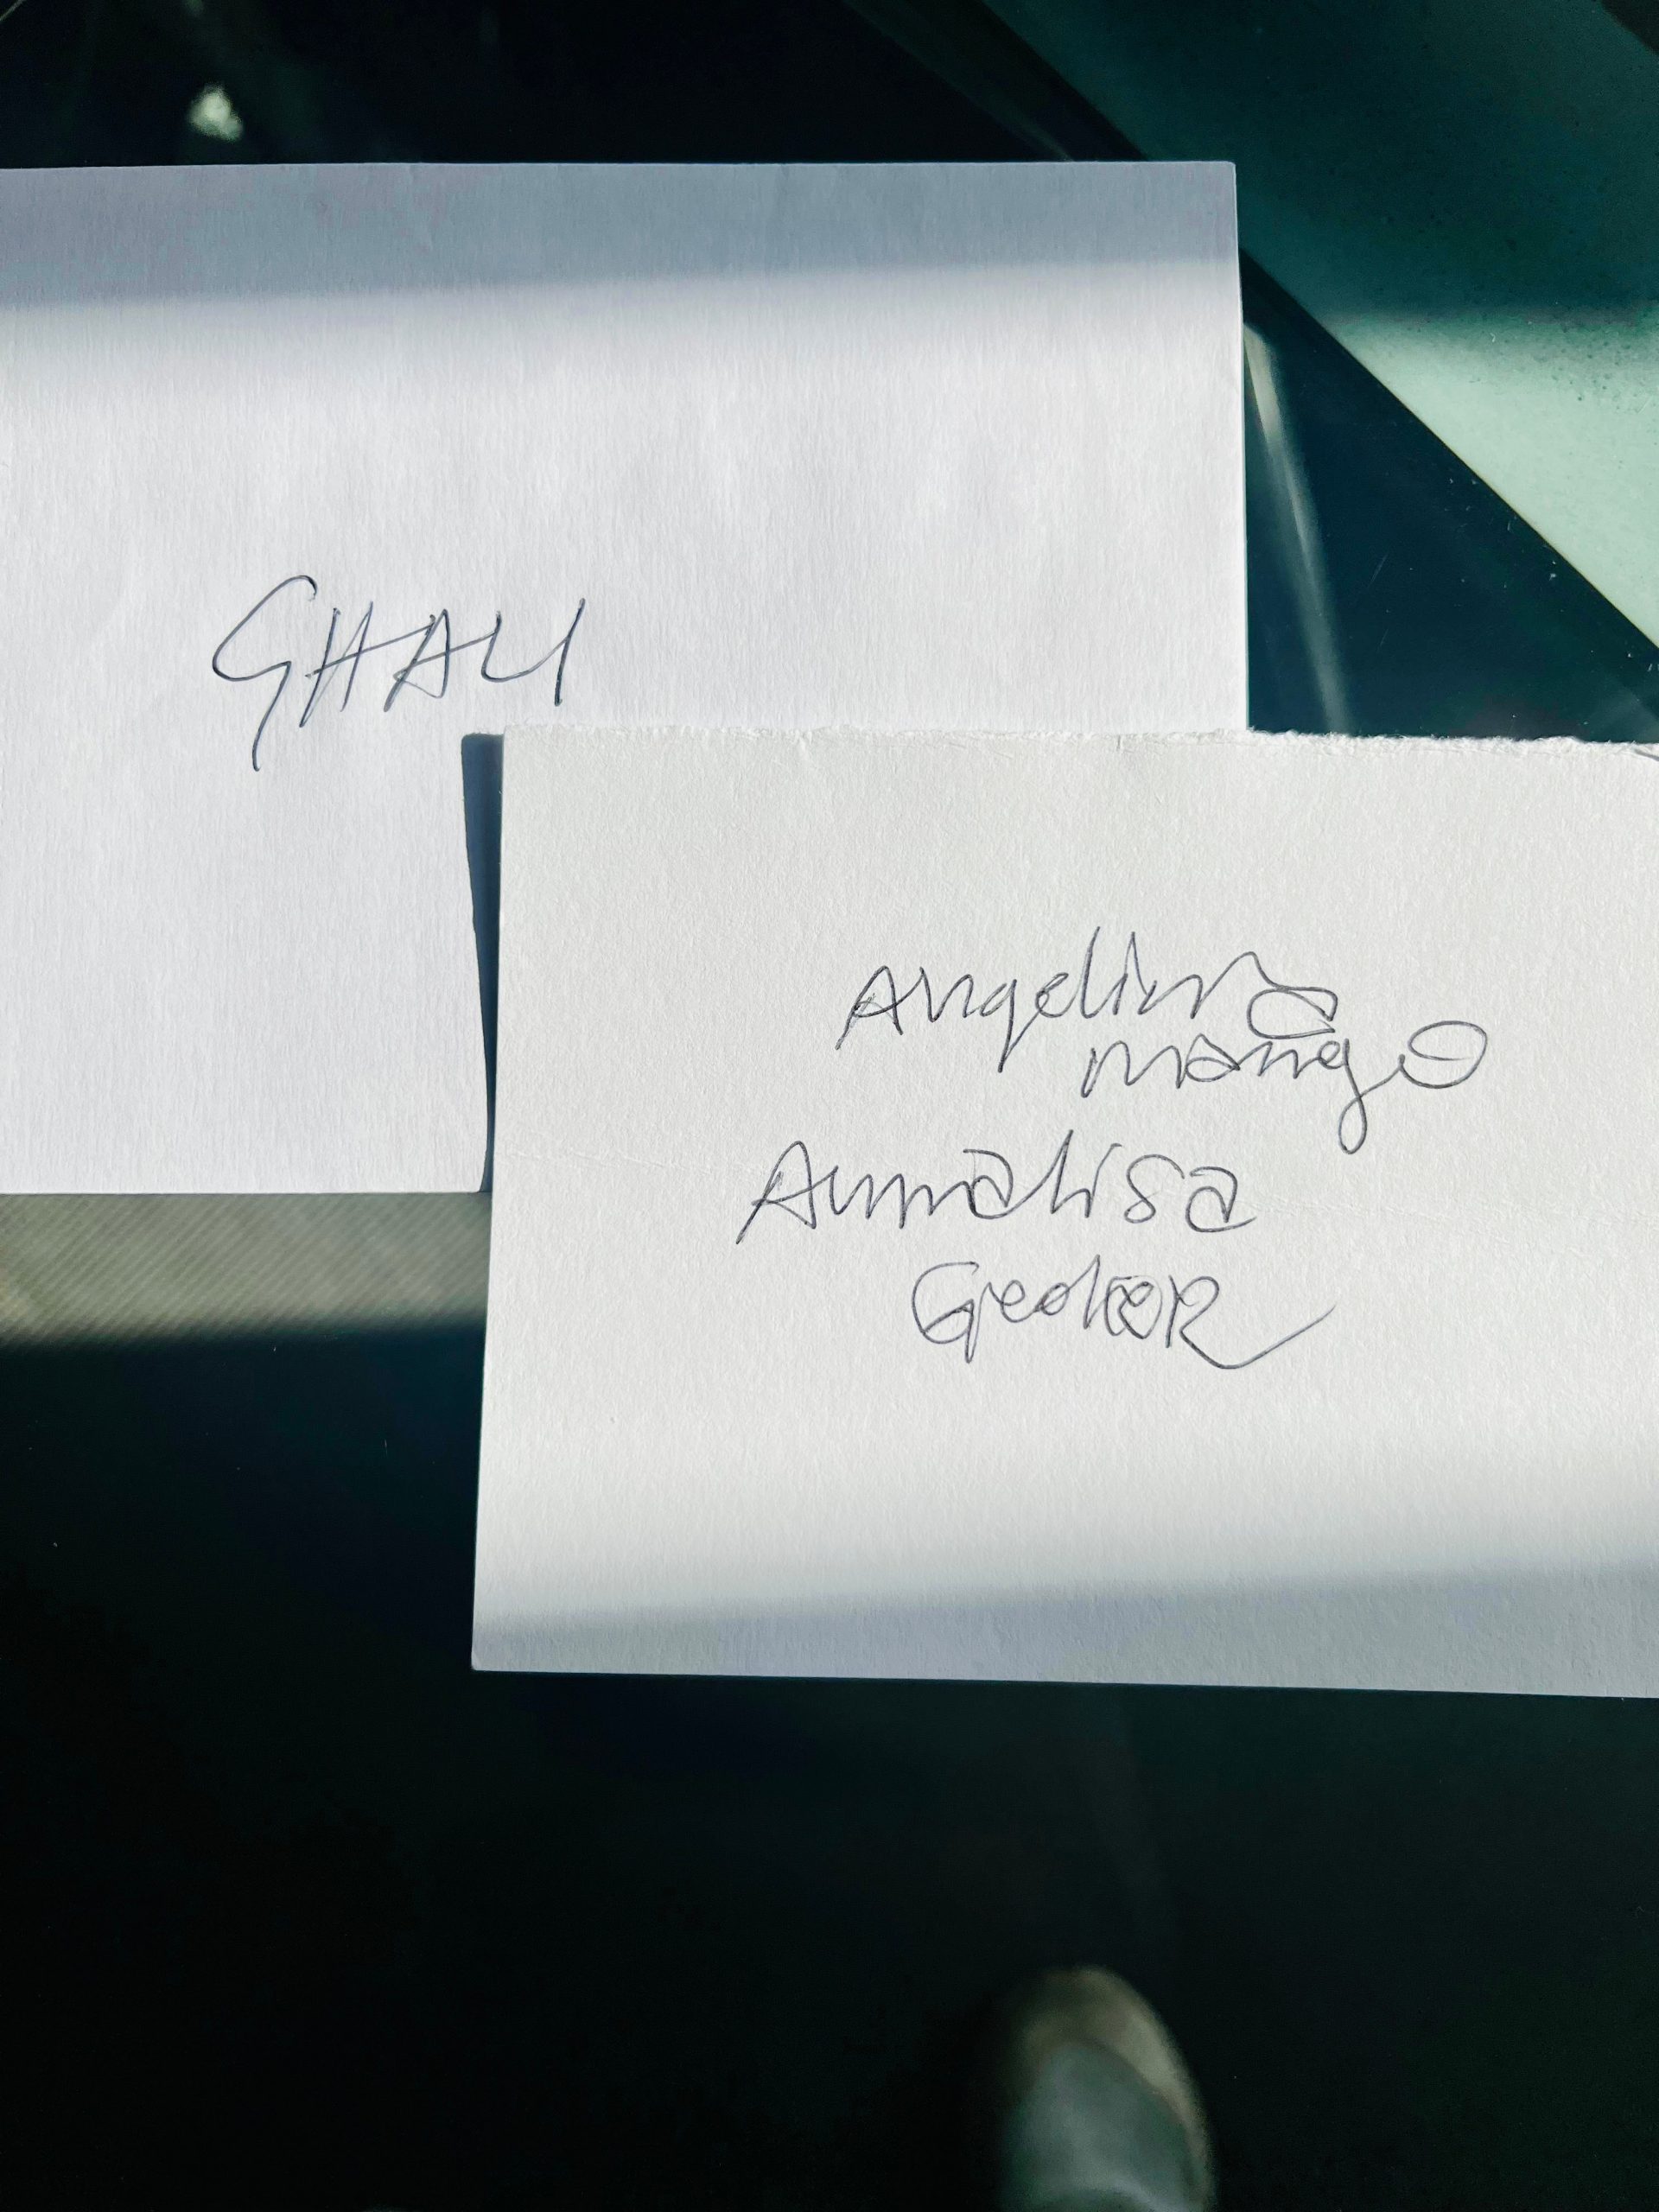 GHALI
Angelina
mango
Annalisa
Geolier